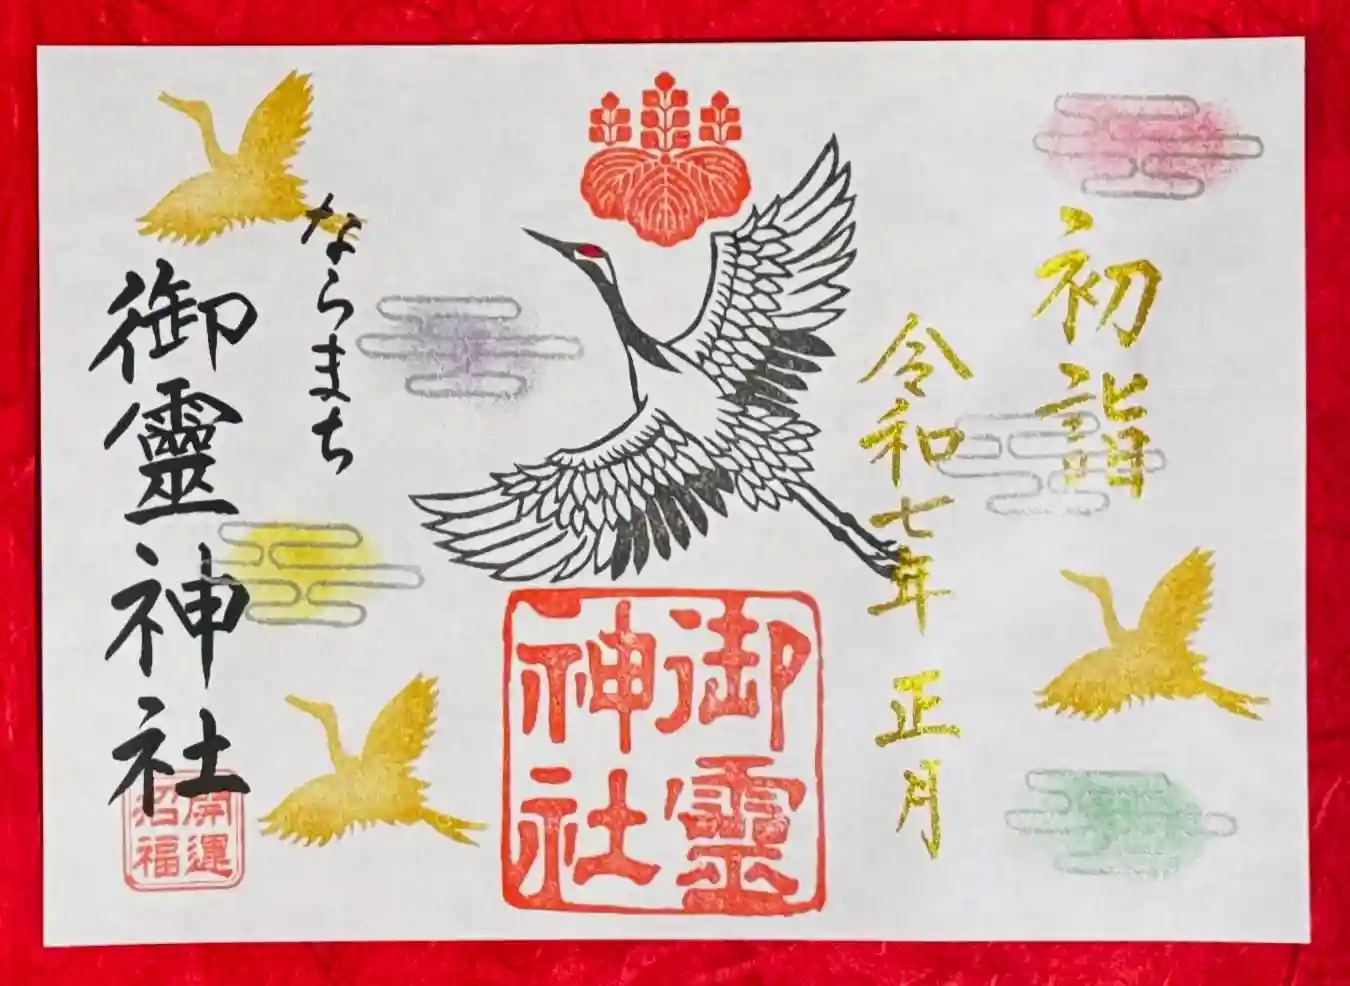 初詣
令和七年 正月
御霊
神社
ならまち
御靈神社
開運
招福